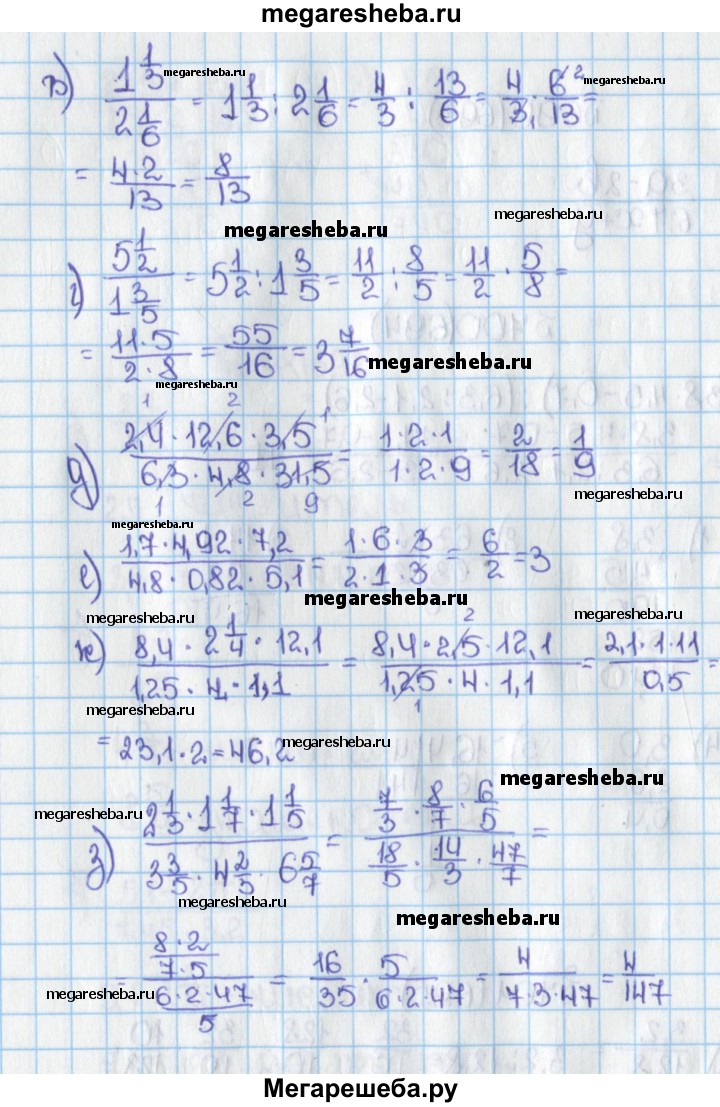 megaresheba.ru
в) 1 1/3 / 2 1/6 = 1 1/3 : 2 1/6 = 4/3 : 13/6 = 4/3₁ · 6²/13 =
megaresheba.ru
megaresheba.ru
= 4·2/13 = 8/13
megaresheba.ru
megaresheba.ru
г) 5 1/2 / 1 3/5 = 5 1/2 : 1 3/5 = 11/2 : 8/5 = 11/2 · 5/8 =
= 11·5/2·8 = 55/16 = 3 7/16
megaresheba.ru
megaresheba.ru
1 2 1
д) 2,4 · 12,6 · 3,5 / 6,3 · 4,8 · 31,5 = 1·2·1/1·2·9 = 2/18 = 1/9
1 2 9
megaresheba.ru
megaresheba.ru
е) 1,7 · 4,92 · 7,2 / 4,8 · 0,82 · 5,1 = 1·6·3/2·1·3 = 6/2 = 3
megaresheba.ru
megaresheba.ru
megaresheba.ru
2
ж) 8,4 · 2 1/4 · 12,1 / 1,25 · 4 · 1,1 = 8,4 · 2,5 · 12,1 / 1,25 · 4 · 1,1 = 2,1·1·11/0,5 =
1
megaresheba.ru
= 23,1·2 = 46,2
megaresheba.ru
megaresheba.ru
megaresheba.ru
з) 2 1/3 · 1 1/7 · 1 1/5 / 3 3/5 · 4 2/3 · 6 5/7 = 7/3 · 8/7 · 6/5 / 18/5 · 14/3 · 47/7 =
megaresheba.ru
megaresheba.ru
= 8·2/7·5 / 6·2·47/5 = 16/35 · 5/6·2·47 = 4/7·3·47 = 4/147
megaresheba.ru
megaresheba.ru
Мегарешеба.ру